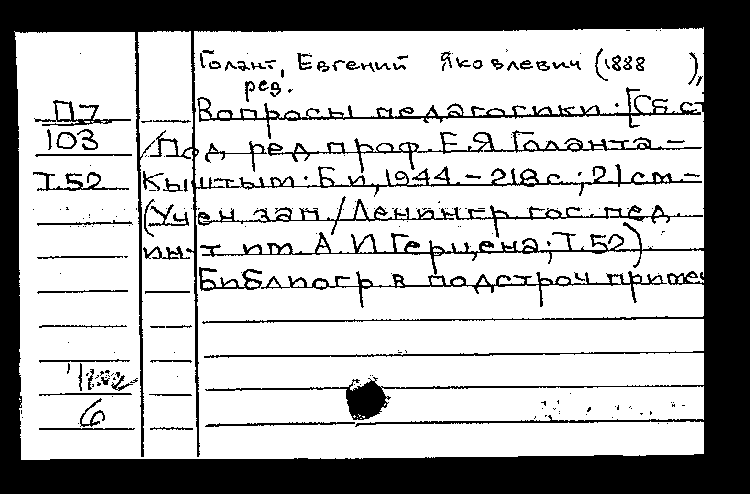 Голант, Евгений Яковлевич (1888 ),
ред.
П7
103
Т.52
Вопросы педагогики: [Сб. ст
/Под ред. проф. Е.Я. Голанта –
Кыштым: Б.и, 1944. – 218 с.; 21 см –
(Учен. зап. / Ленингр. гос. пед.
ин-т им. А.И. Герцена; Т. 52)
Библиогр. в подстроч. приме
6